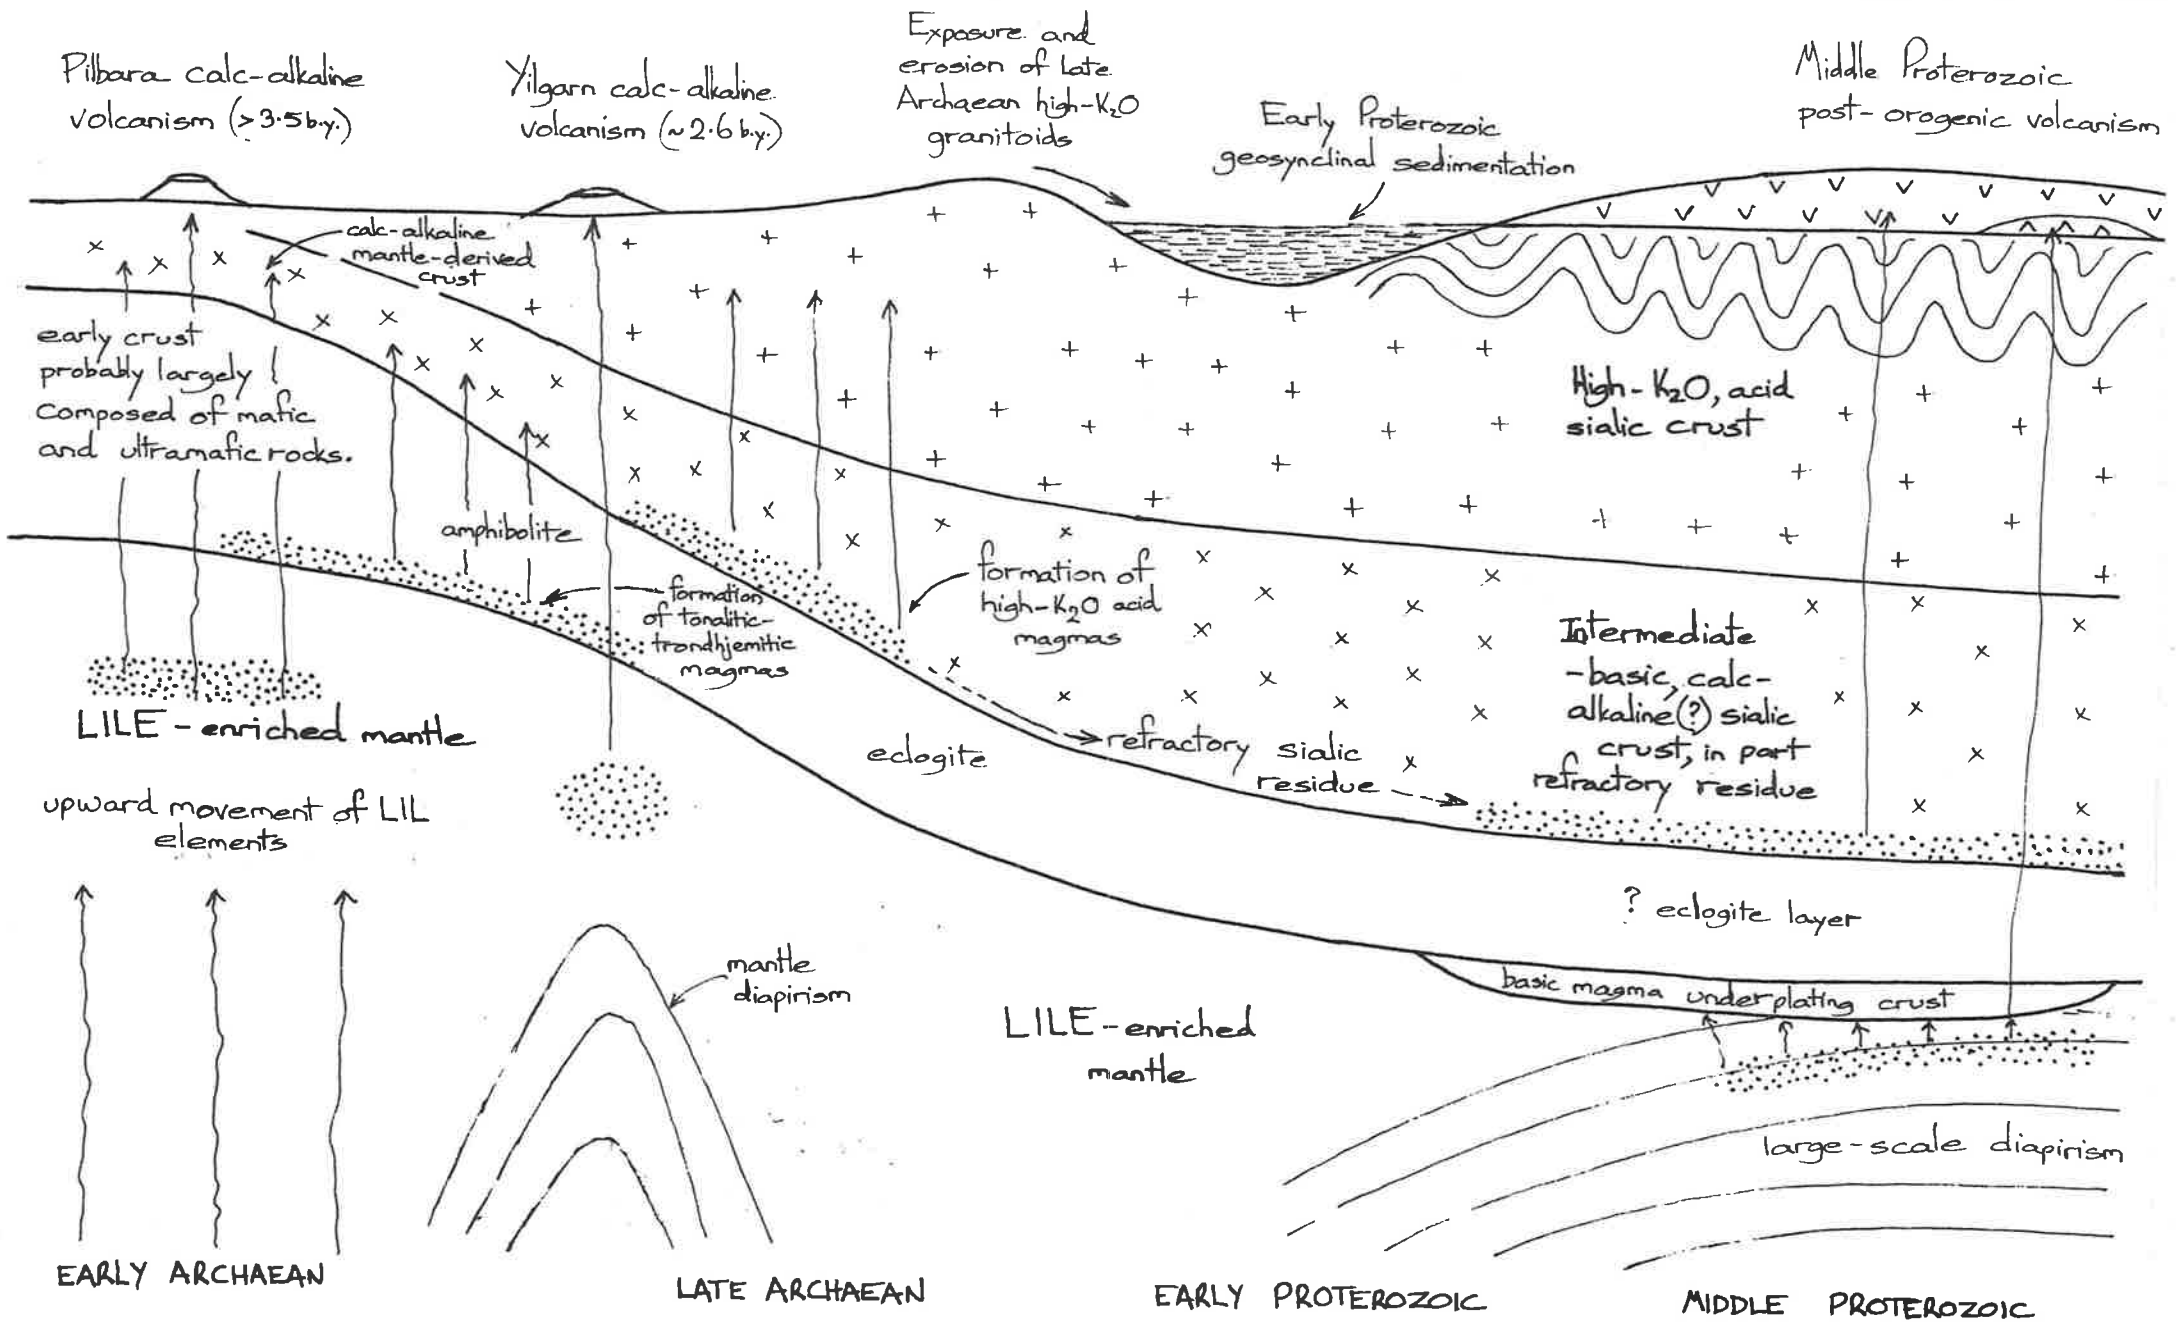 Pilbara calc-alkaline
volcanism (>3.5 b.y.)
Yilgarn calc-alkaline
volcanism (~2.6 b.y.)
Exposure and
erosion of Late
Archaean high-K₂O
granitoids
Early Proterozoic
geosynclinal sedimentation
Middle Proterozoic
post-orogenic volcanism
calc-alkaline
mantle-derived
crust
early crust
probably largely
composed of mafic
and ultramafic rocks.
amphibolite
formation
of tonalitic-
trondhjemitic
magmas
formation of
high-K₂O acid
magmas
High-K₂O, acid
sialic crust
Intermediate
-basic, calc-
alkaline(?) sialic
crust, in part
refractory residue
LILE-enriched mantle
upward movement of LIL
elements
eclogite
refractory sialic
residue
? eclogite layer
basic magma underplating crust
mantle
diapirism
LILE-enriched
mantle
large-scale diapirism
EARLY ARCHAEAN
LATE ARCHAEAN
EARLY PROTEROZOIC
MIDDLE PROTEROZOIC